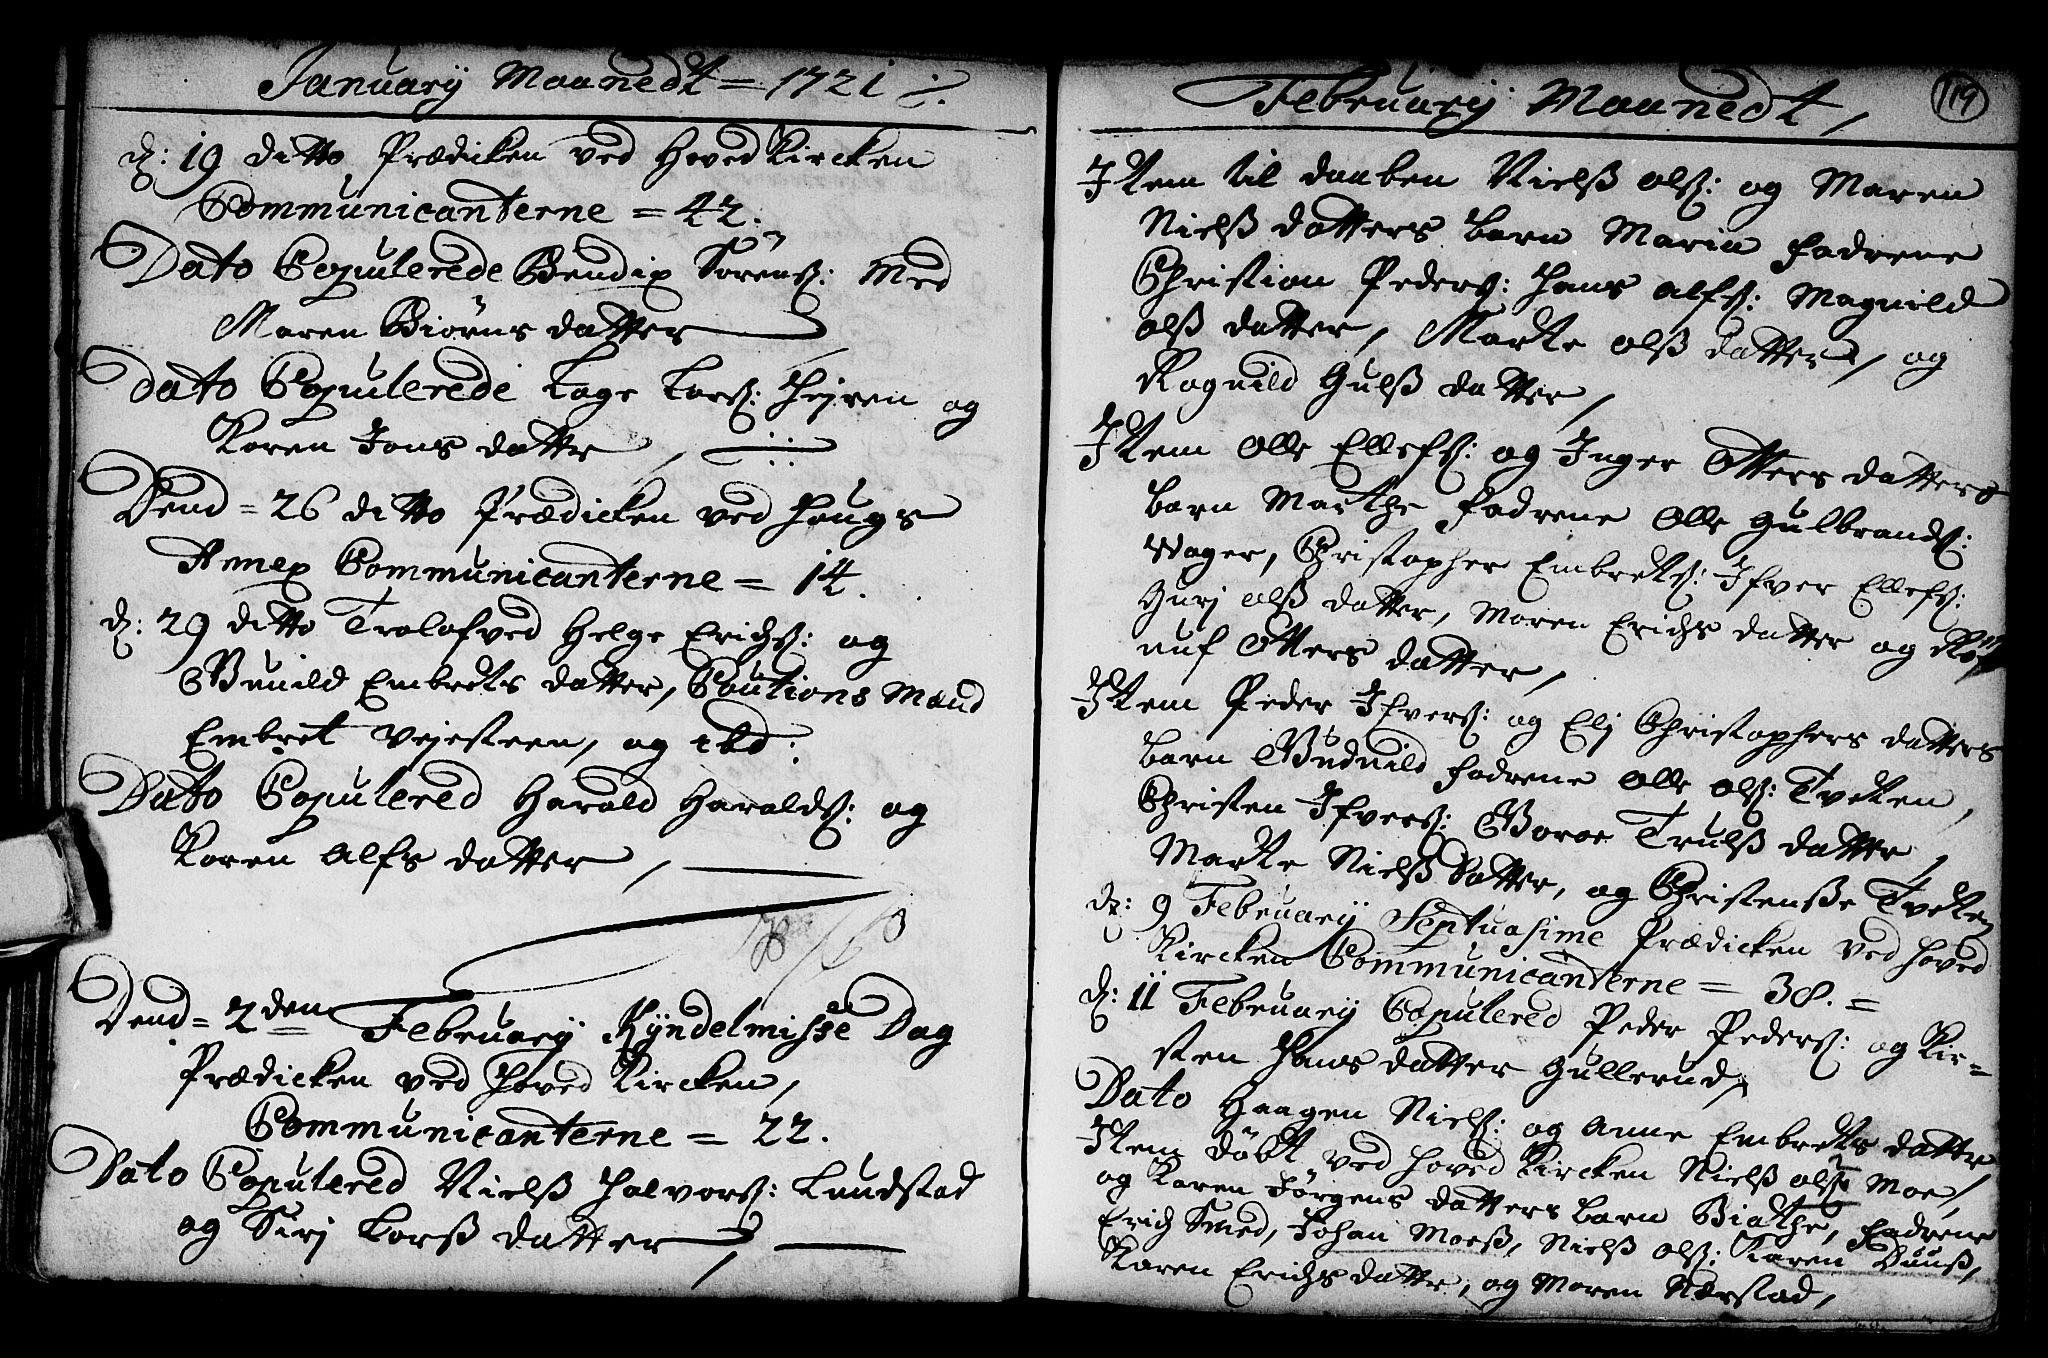 Januarÿ Maanedt = 1721 ∴
d: 19 ditto Prædicken ved HovedKircken
Communicanterne = 42.
Dato Copulerede Bendix Sörenß: Med
Maren Biörns datter
Dato Copulerede Lage Larß: og
Karen Jons datter,
Dend = 26 ditto Prædicken ved Haugs
Annex Communicanterne = 14.
d: 29 ditto Trolofved Helge Erichß: og
Gunild Embrets datter, Cautions Mænd
Embret Vejesteen, og
Dato Copulered Harald Haraldß: og
Karen Alfs datter,
Dend = 2den Februarÿ Kÿndelmisse Dag
Prædicken ved Hoved Kircken,
Communicanterne = 22.
Dato Copulered Nielß Halvorß: Lundstad
og Sirj Larß datter,
Februarÿ Maanedt,
119
Item til daaben Nielß Olß: og Maren
Nielß datters barn Maria fadrene
Christian Pederß: Hans Alfß: Magnild
Olß datter, Marte Olß datter, og
Ragnild Gulß datter,
Item Olle Ellefß: og Inger Otters datters
barn Marthe fadrene Olle Gulbrandß:
Wager, Christopher Embretß: Ifver Ellefß:
Gurj Olß datter, Maren Erichs datter og
Otters datter,
Item Peder Ifverß: og Elj Christophers datters
barn Gudnild fadrene Olle Olß: Tveten,
Christen Ifverß: Goroe Trulß datter,
Marte Nielß Datter, og Christenße Tveten
d: 9 Februarÿ Septuasime Prædicken ved Hoved
Kircken Communicanterne = 38. =
d: 11 Februarÿ Copulered Peder Pederß: og Kir=
sten Hans datter Gullerud,
Dato Haagen Nielß: og Anne Embrets datter
Item döbt ved Hoved Kircken Nielß Olß: Moe,
og Karen Jörgens datters barn Biathe, fadrene
Erich Smed, Johan Moeß, Nielß Olß: Karen Duuß,
Karen Erichs datter, og Maren Nærstad,